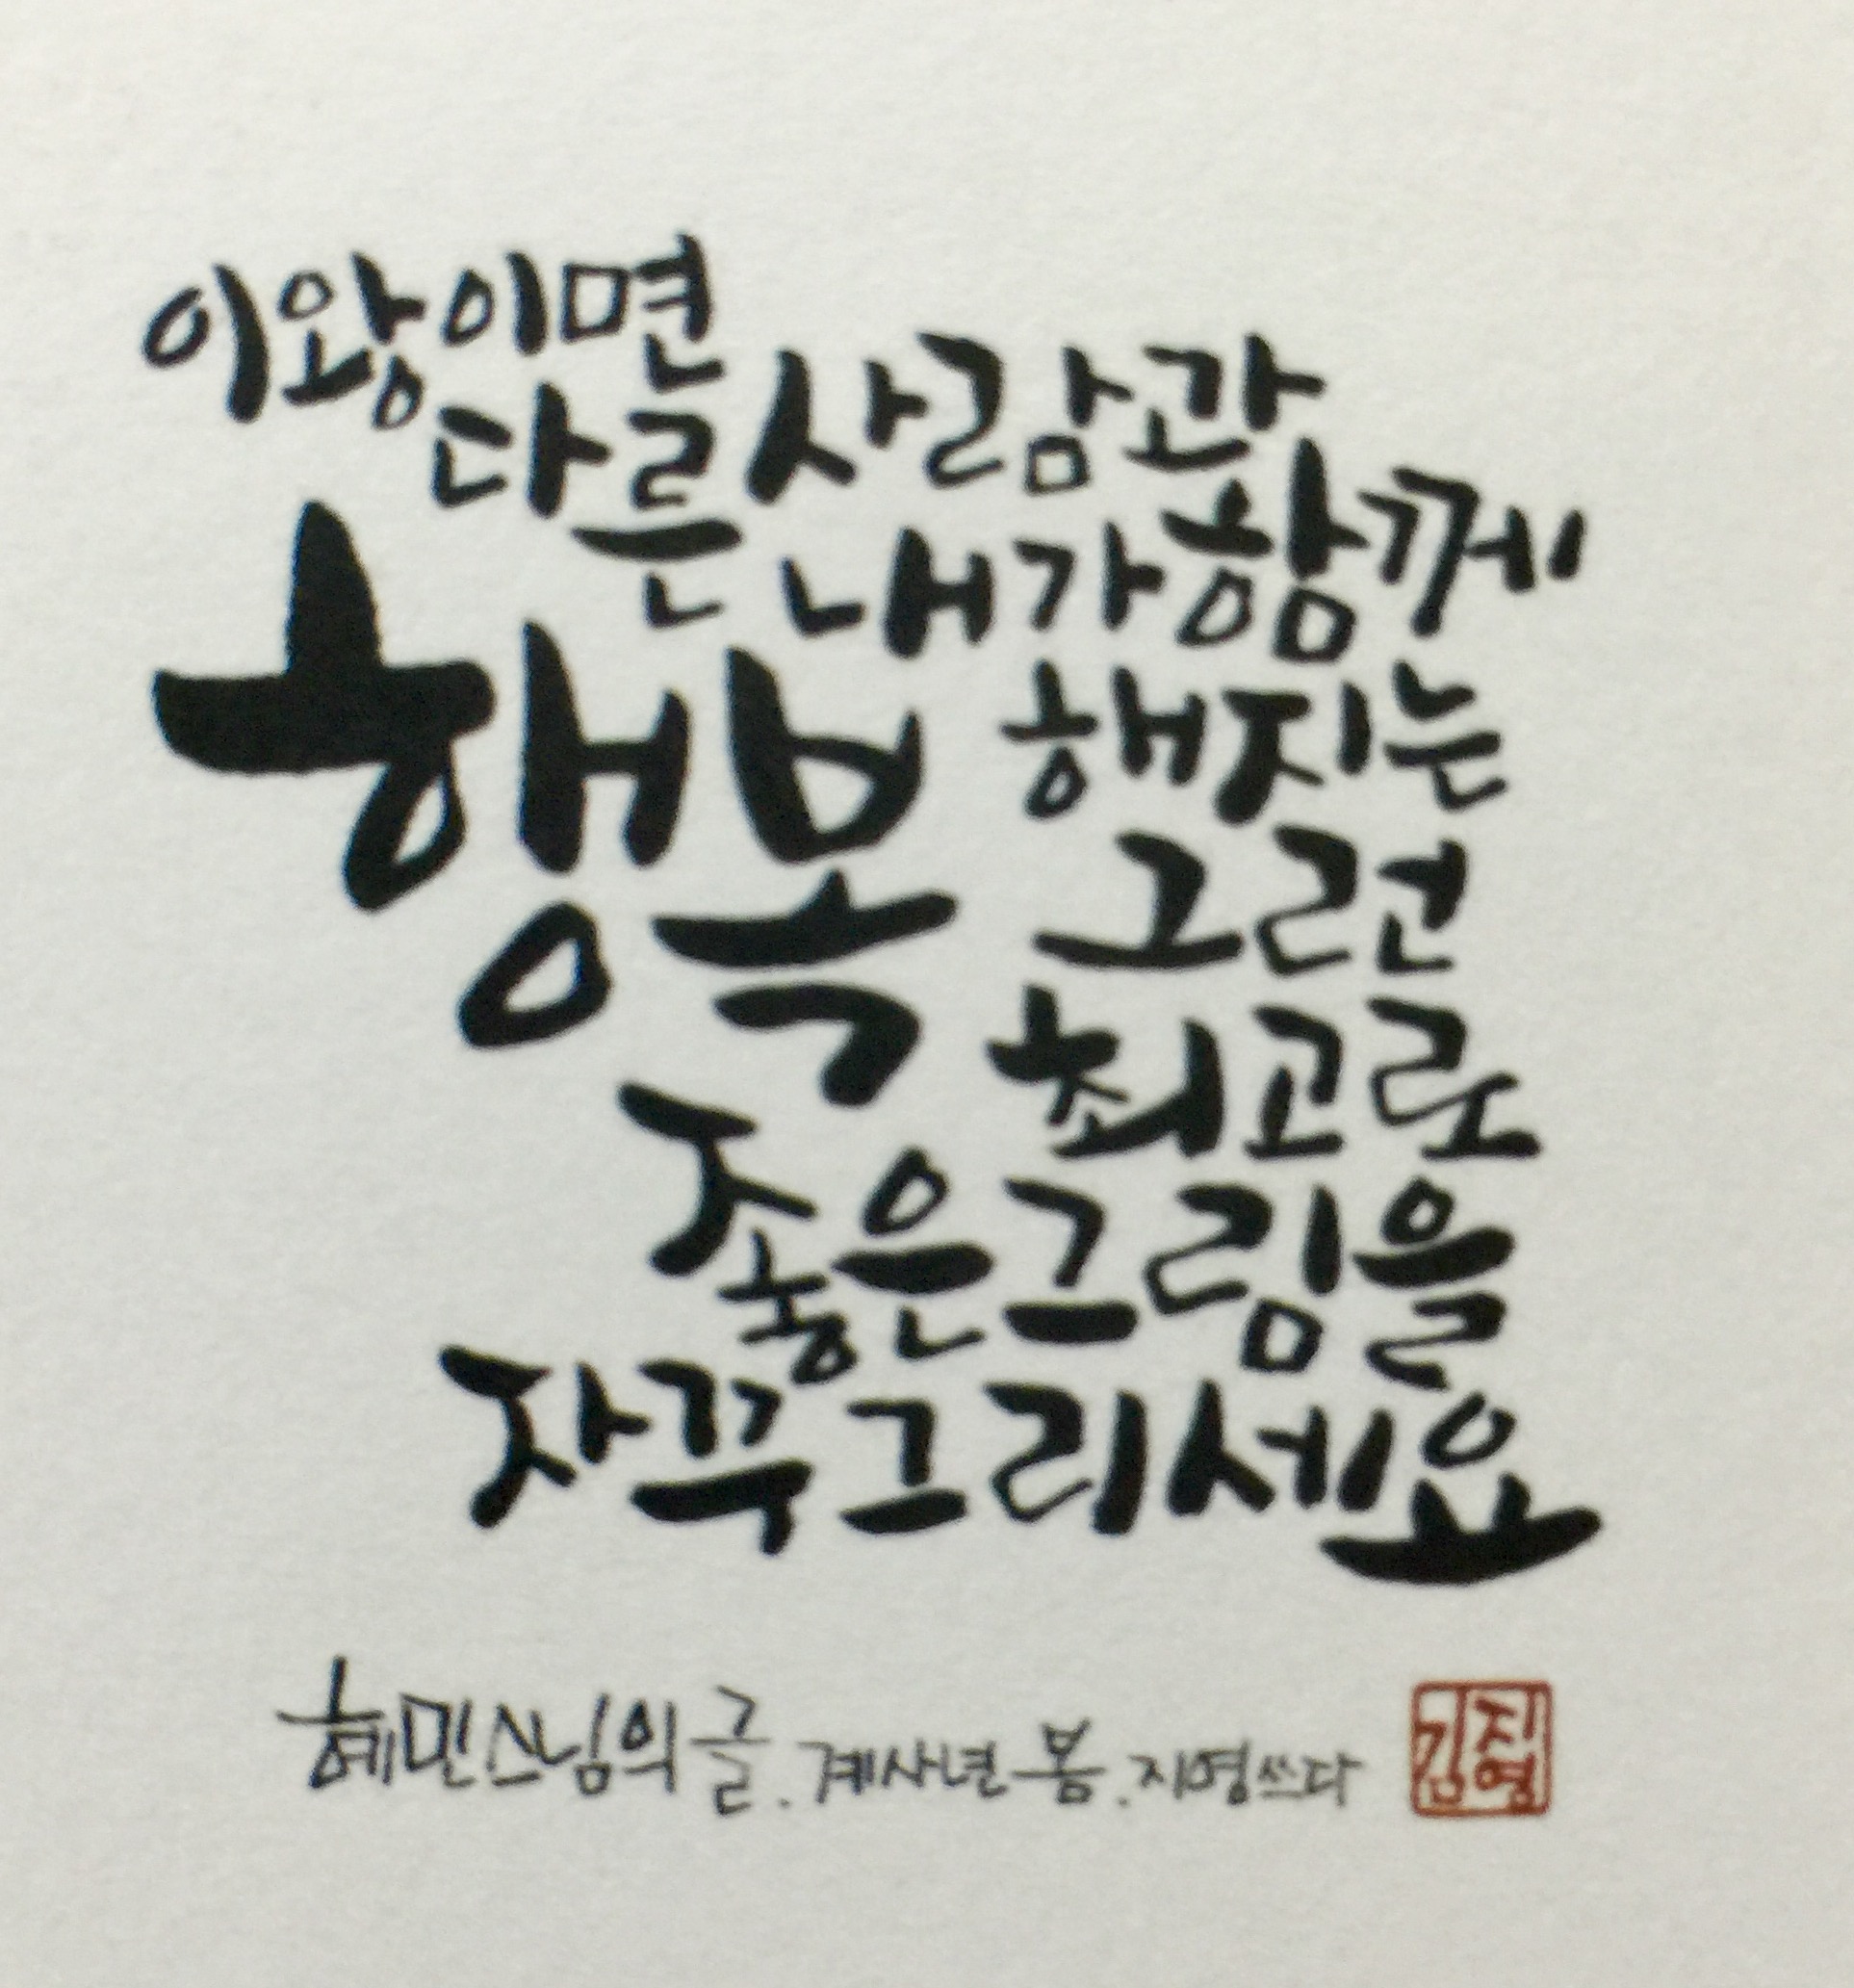 이왕이면
다른 사람과
내가 함께
행복해지는
그런
최고로
좋은 그림을
자꾸 그리세요
혜민스님의 글. 계사년 봄. 지영쓰다
김지영